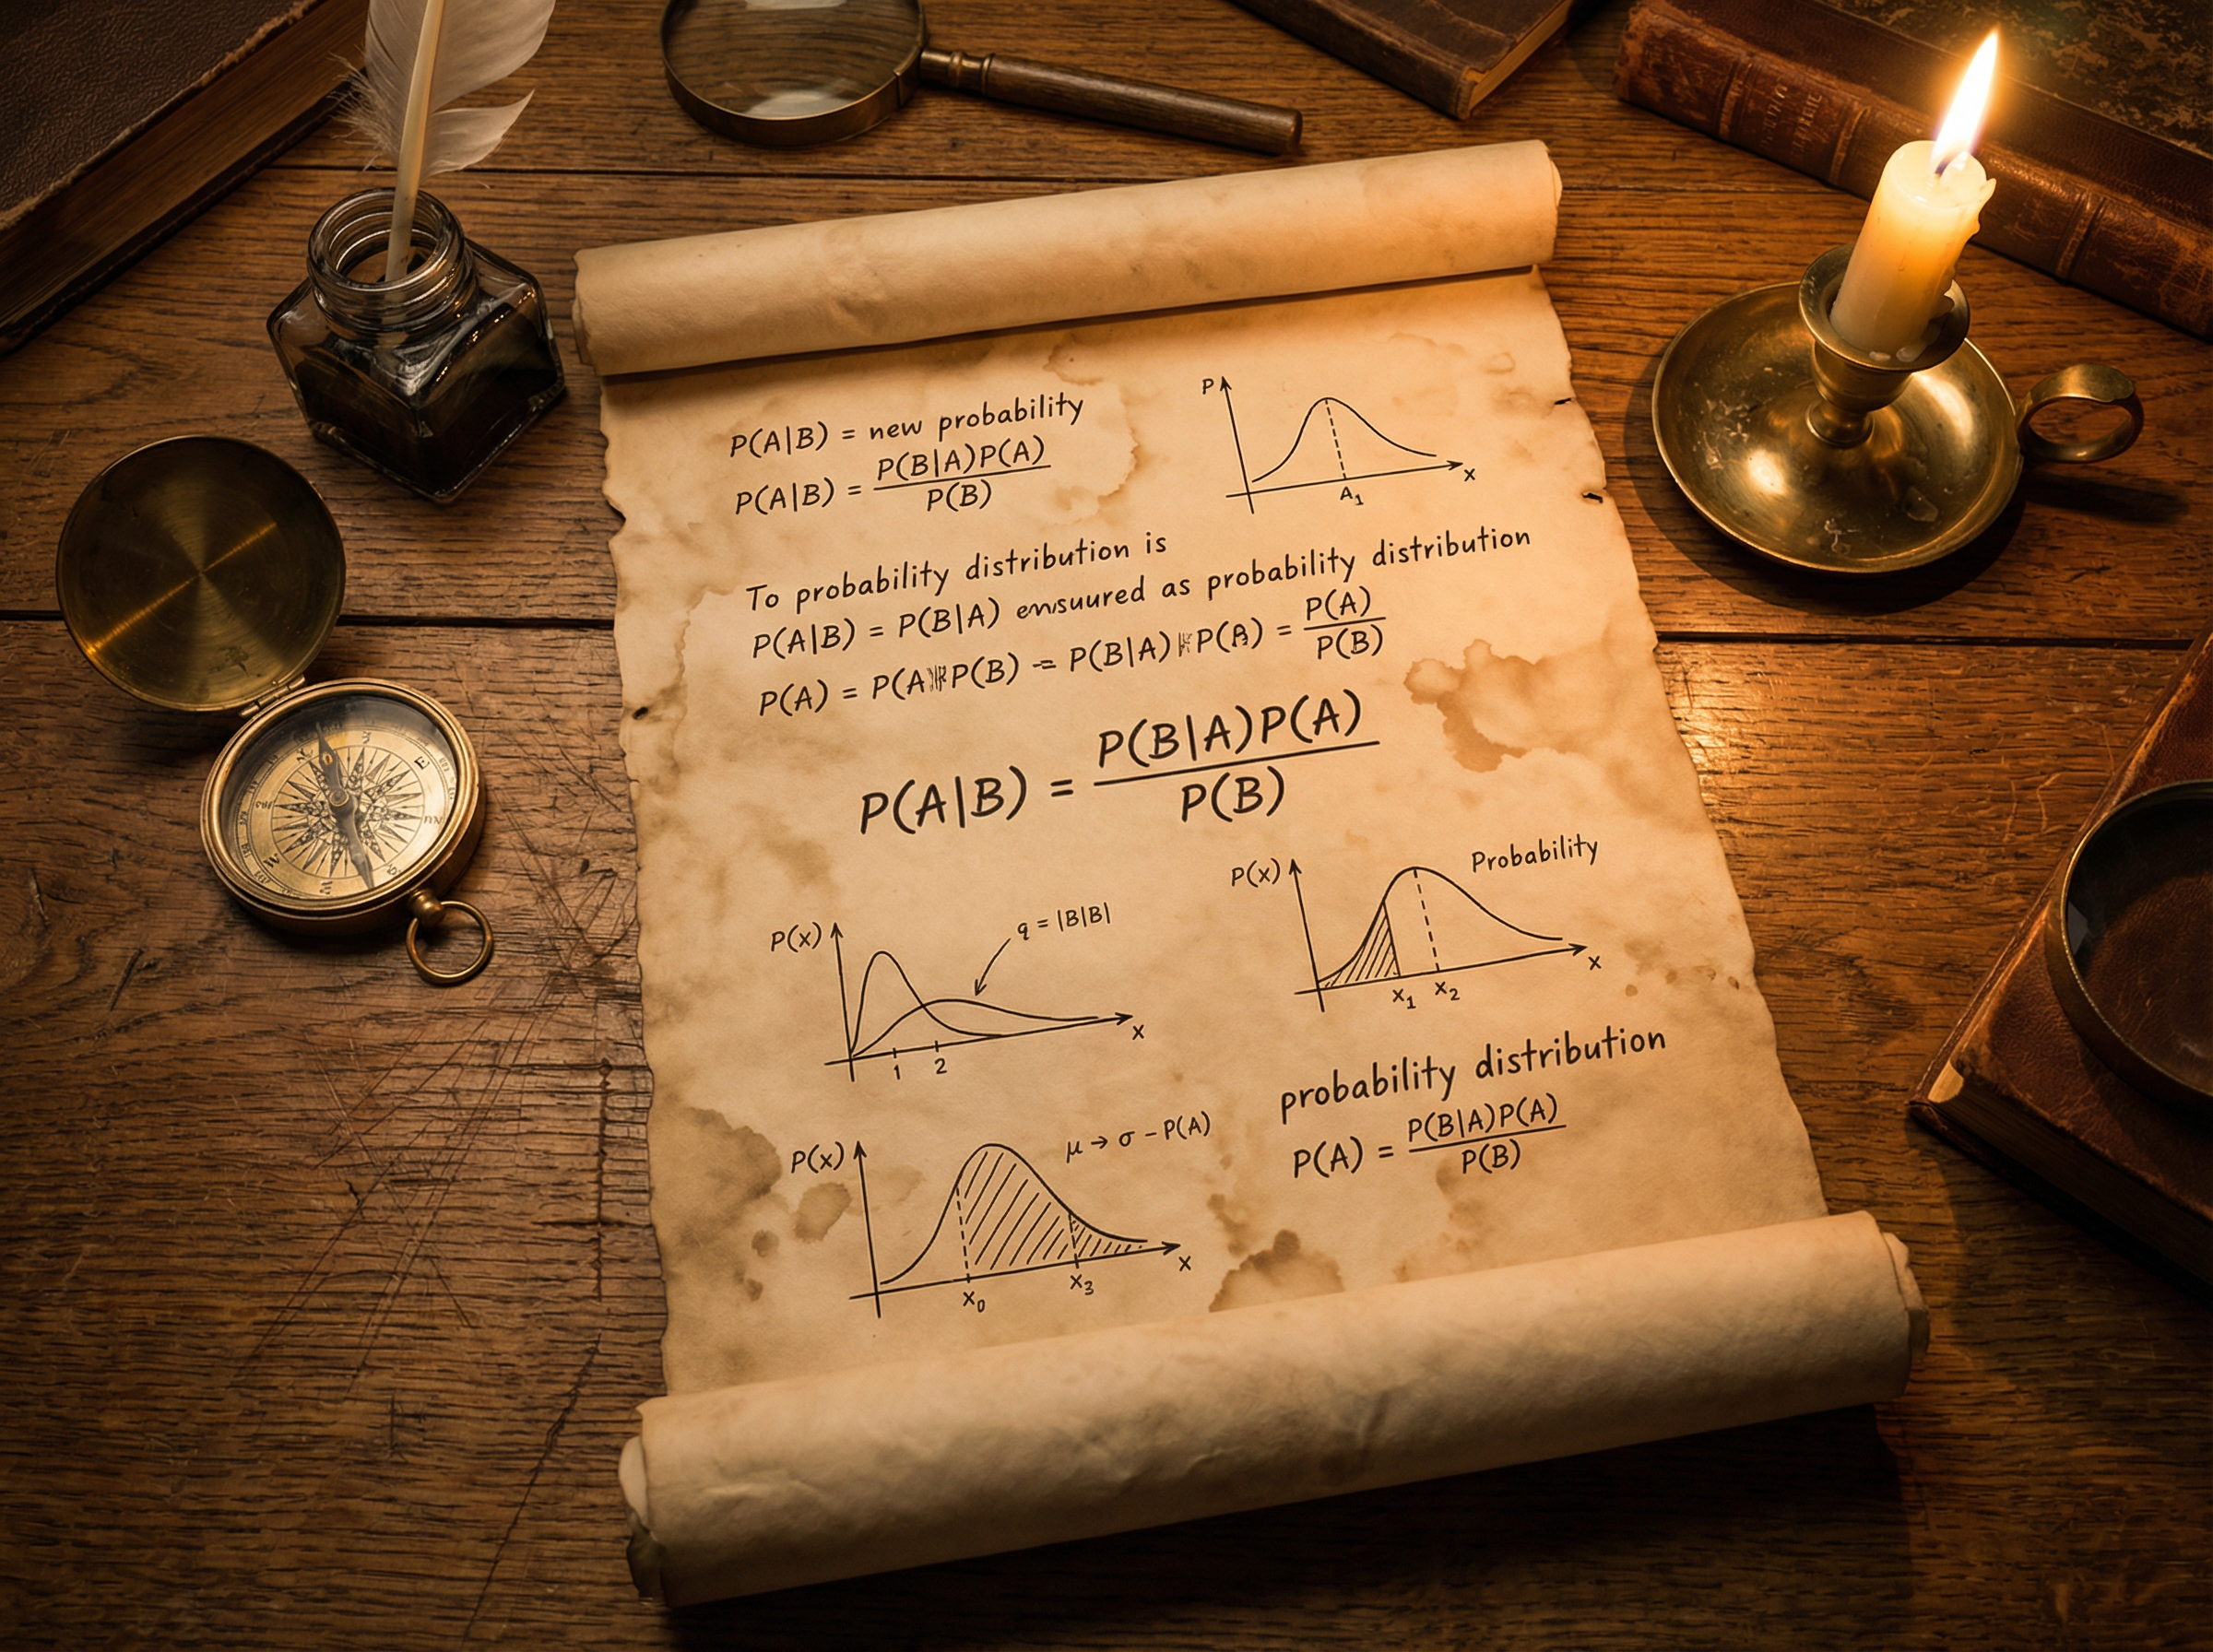 P(A|B) = new probability
P(A|B) = P(B|A)P(A) / P(B)
P
x
A₁
To probability distribution is
P(A|B) = P(B|A) as probability distribution
P(A) = P(A P(B) = P(B|A) P(A) = P(A) / P(B)
P(A|B) = P(B|A)P(A) / P(B)
P(x)
q = |B|B|
x
1 2
P(x)
Probability
x
x₁ x₂
probability distribution
P(A) = P(B|A)P(A) / P(B)
P(x)
μ → σ − P(A)
x
x₀ x₃